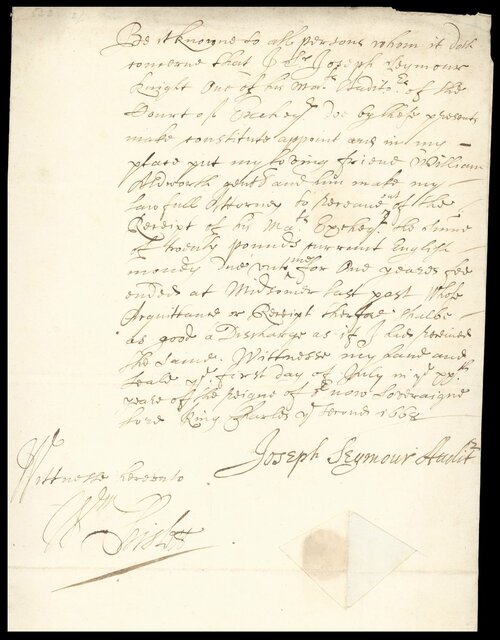 Be it knowne to all persons whom it doth
concerne that I Sr Joseph Seymour
Knight One of his Mats Auditors of the
Court of Excheqr Doe by these presents
make constitute appoint and in my
place put my loving friend William
Aldworth gent and him make my
lawfull Attorney to receave of the
Receipt of his Mats Excheqr the sume
of twenty pounds currant English
money due unto mee for One yeares fee
ended at Midsomer last past Whose
Acquittance or Receipt therefore shalbe
as good a Discharge as if I had received
the same. Wittnesse my hand and
Seale ye first day of July in ye xxth
yeare of the reigne of or now Soveraigne
Lord King Charles ye second 1668
Joseph Seymour Auditr
Wittnesse hereunto
Wm